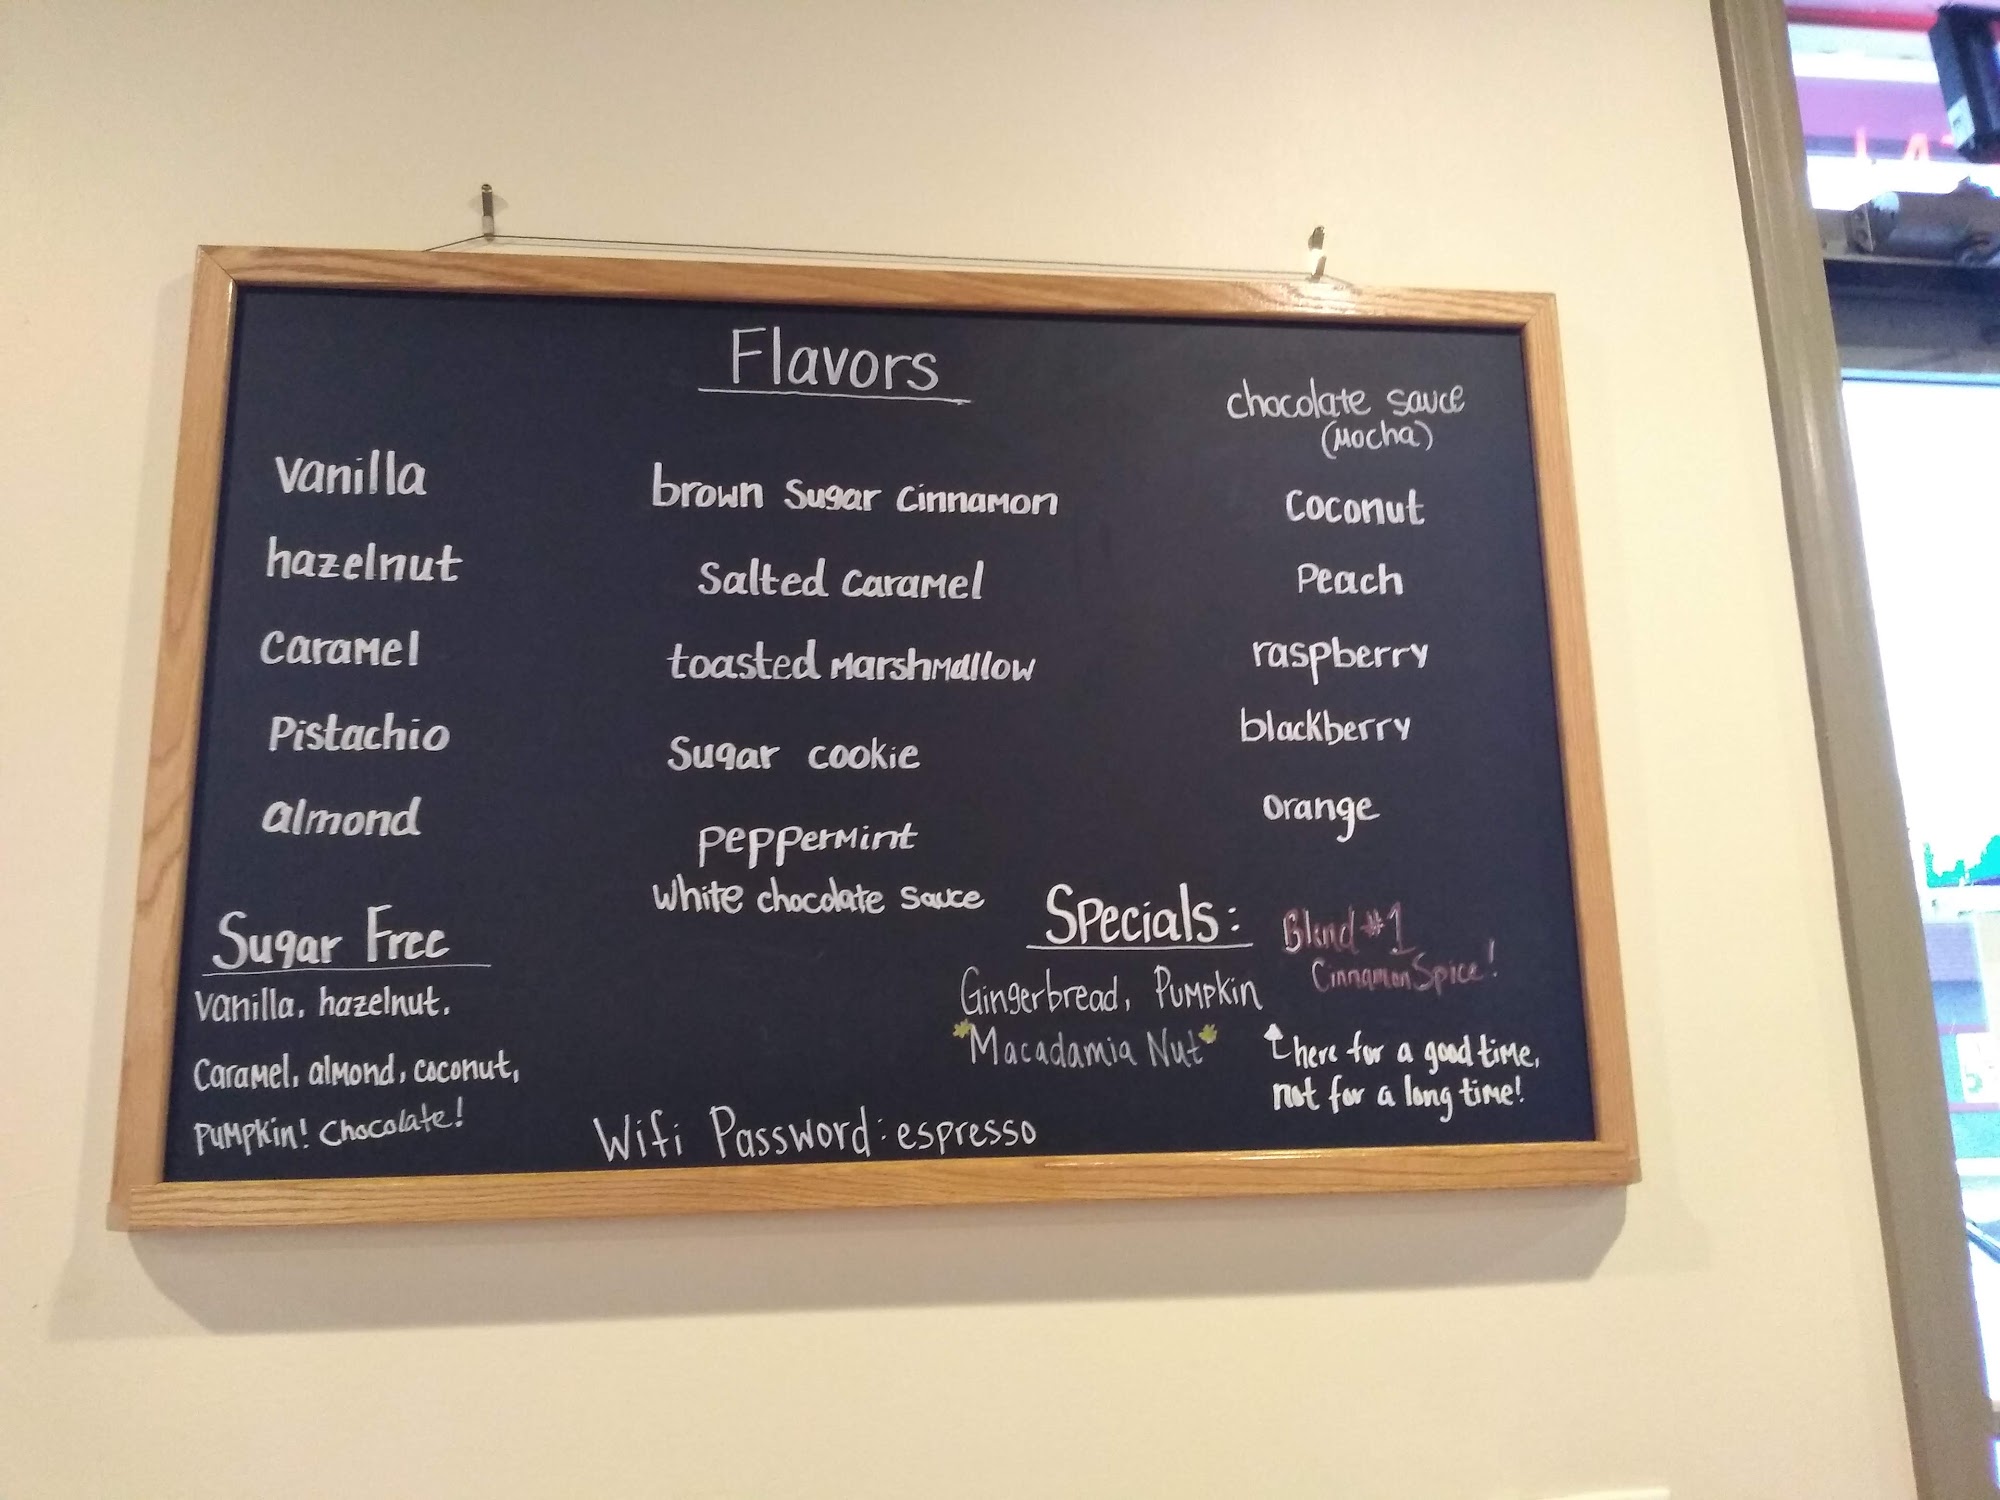 Flavors
vanilla
hazelnut
caramel
Pistachio
almond
brown Sugar Cinnamon
Salted Caramel
toasted Marshmallow
Sugar cookie
peppermint
white chocolate sauce
chocolate sauce
(Mocha)
Coconut
Peach
raspberry
blackberry
orange
Sugar Free
vanilla, hazelnut,
Caramel, almond, coconut,
Pumpkin! Chocolate!
Specials:
Gingerbread, Pumpkin
*Macadamia Nut*
Blend #1
Cinnamon Spice!
here for a good time,
not for a long time!
Wifi Password: espresso